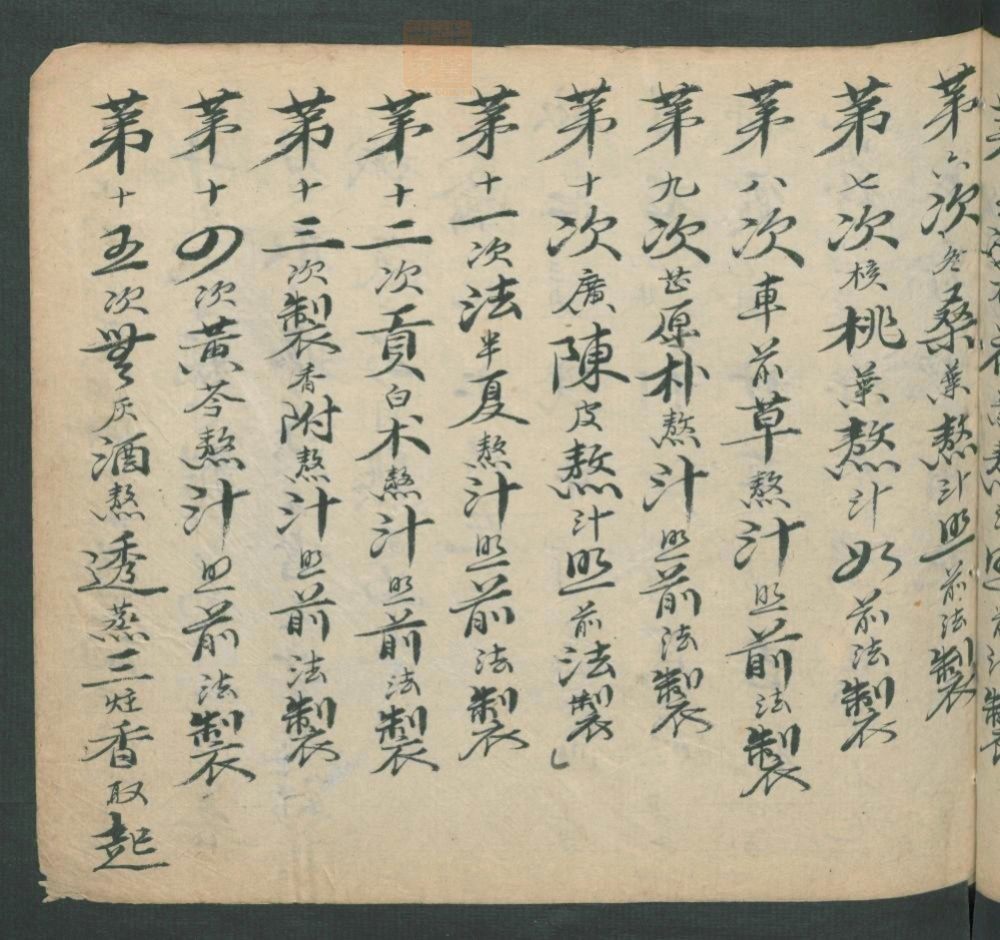 第六次冬桑葉熬汁照前法製
第七次核桃葉熬汁如前法製
第八次車前草熬汁照前法製
第九次甚厚朴熬汁照前法製
第十次廣陳皮熬汁照前法製
第十一次法半夏熬汁照前法製
第十二次貢白朮熬汁照前法製
第十三次製香附熬汁照前法製
第十四次黃芩熬汁照前法製
第十五次無灰酒熬透蒸三炷香取起